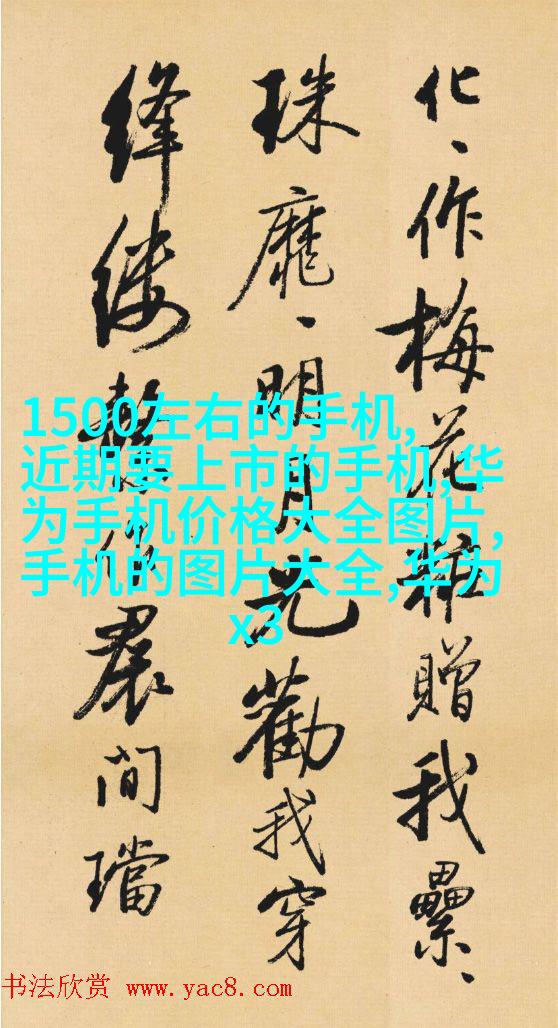 化、作梅花粧贈我纍、
珠靡、明月光勸我穿
絳縷繫作裠間璫
1500左右的手机,
近期要上市的手机,华
为手机价格大全图片,
手机的图片大全,华为
x3
书法欣赏 www.yac8.com